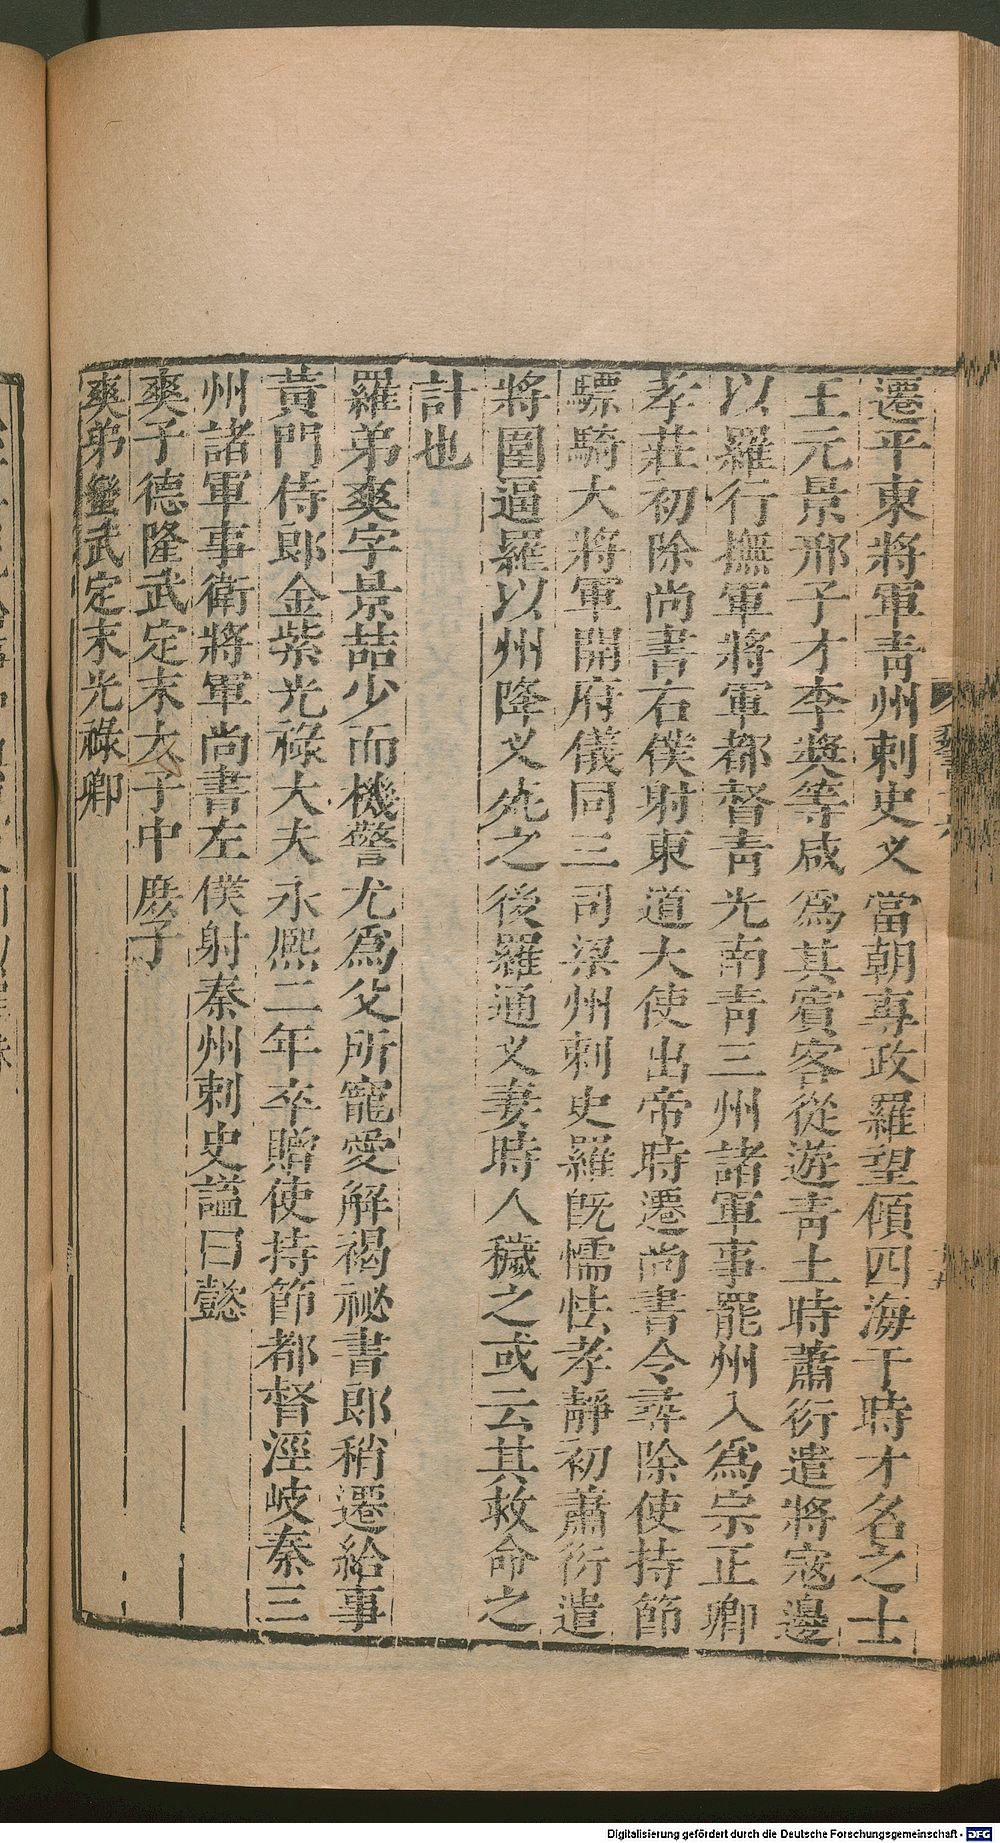 遷平東將軍青州刺史叉當朝專政羅望傾四海于時才名之士
王元景邢子才李獎等咸爲其賓客從遊青土時蕭衍遣將寇邊
以羅行撫軍將軍都督青光南青三州諸軍事罷州入爲宗正卿
孝莊初除尚書右僕射東道大使出帝時遷尚書令尋除使持節
驃騎大將軍開府儀同三司梁州刺史羅旣懦怯孝靜初蕭衍遣
將圍逼羅以州降叉死之後羅通叉妻時人穢之或云其救命之
計也
羅弟爽字景喆少而機警尤爲父所寵愛解褐祕書郎稍遷給事
黃門侍郎金紫光祿大夫永熙二年卒贈使持節都督涇岐秦三
州諸軍事衛將軍尚書左僕射秦州刺史謚曰懿
爽子德隆武定末太子中庶子
爽弟蠻武定末光祿卿
Digitalisierung gefördert durch die Deutsche Forschungsgemeinschaft - DFG